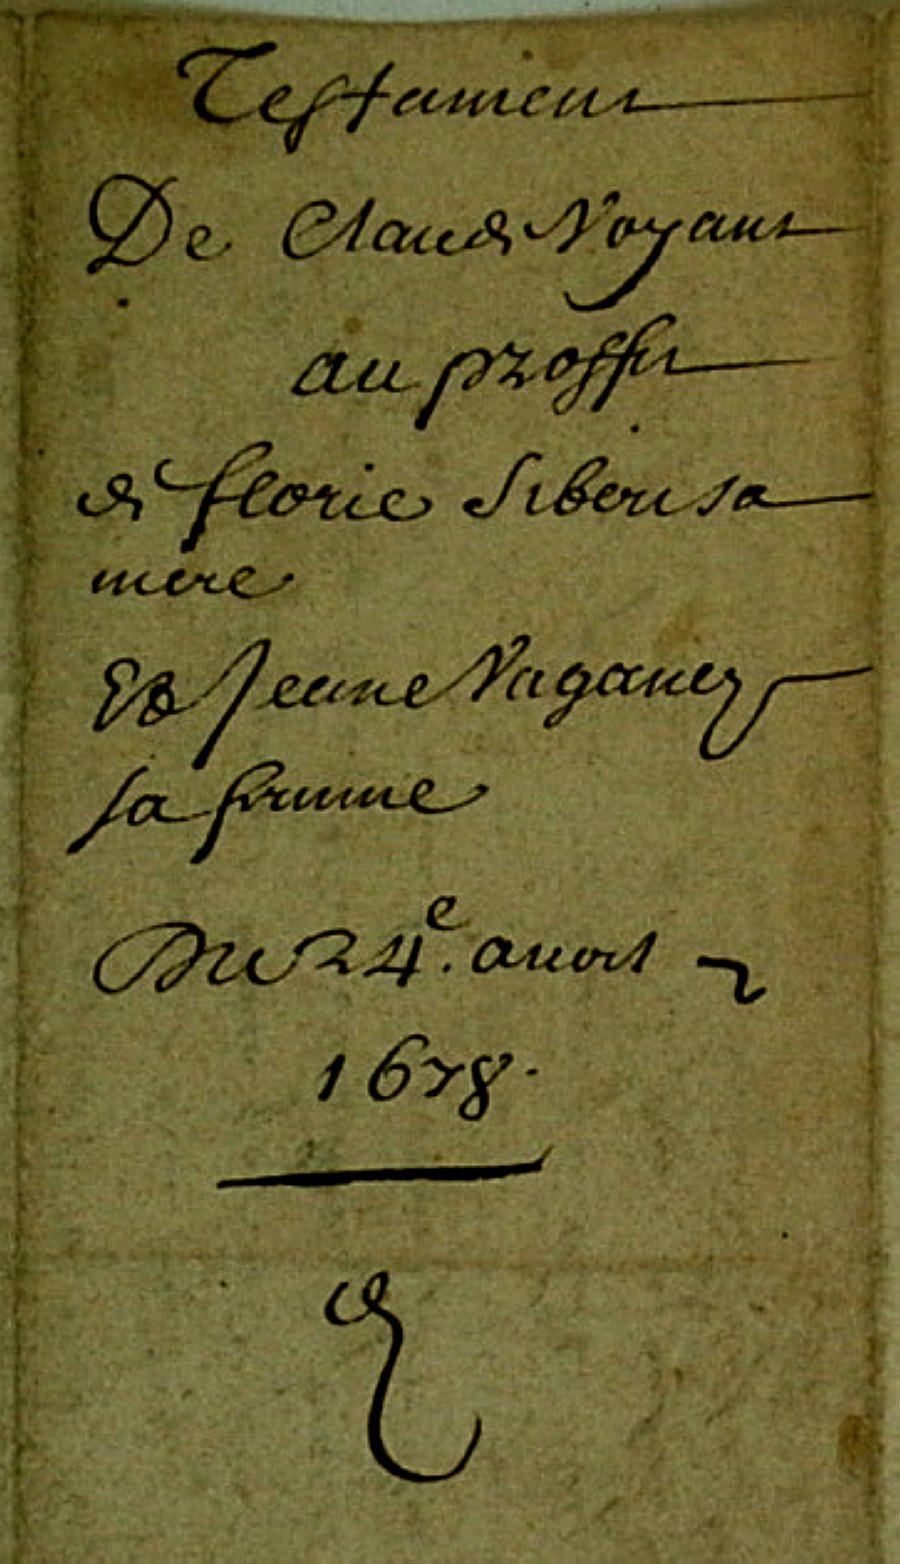 Testament
De Claude Voyant
au proffit
de florie Sibert sa
mere
Et Jeanne Vaganey
sa femme
Du 24e. aoust
1678.